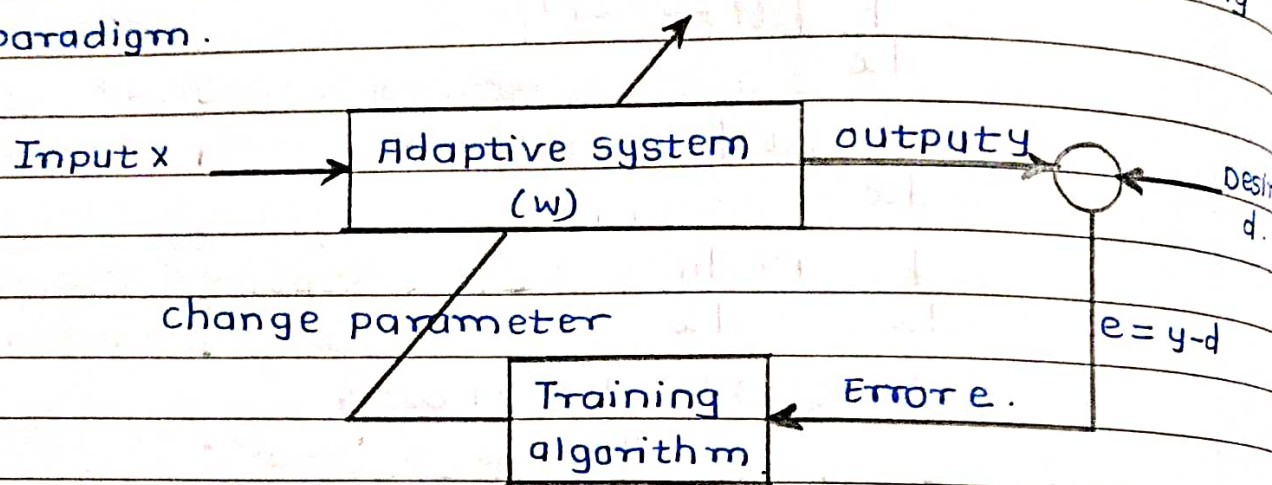 paradigm.
Input x
Adaptive system
(W)
output y
d.
change parameter
e = y-d
Training
algorithm
Error e.